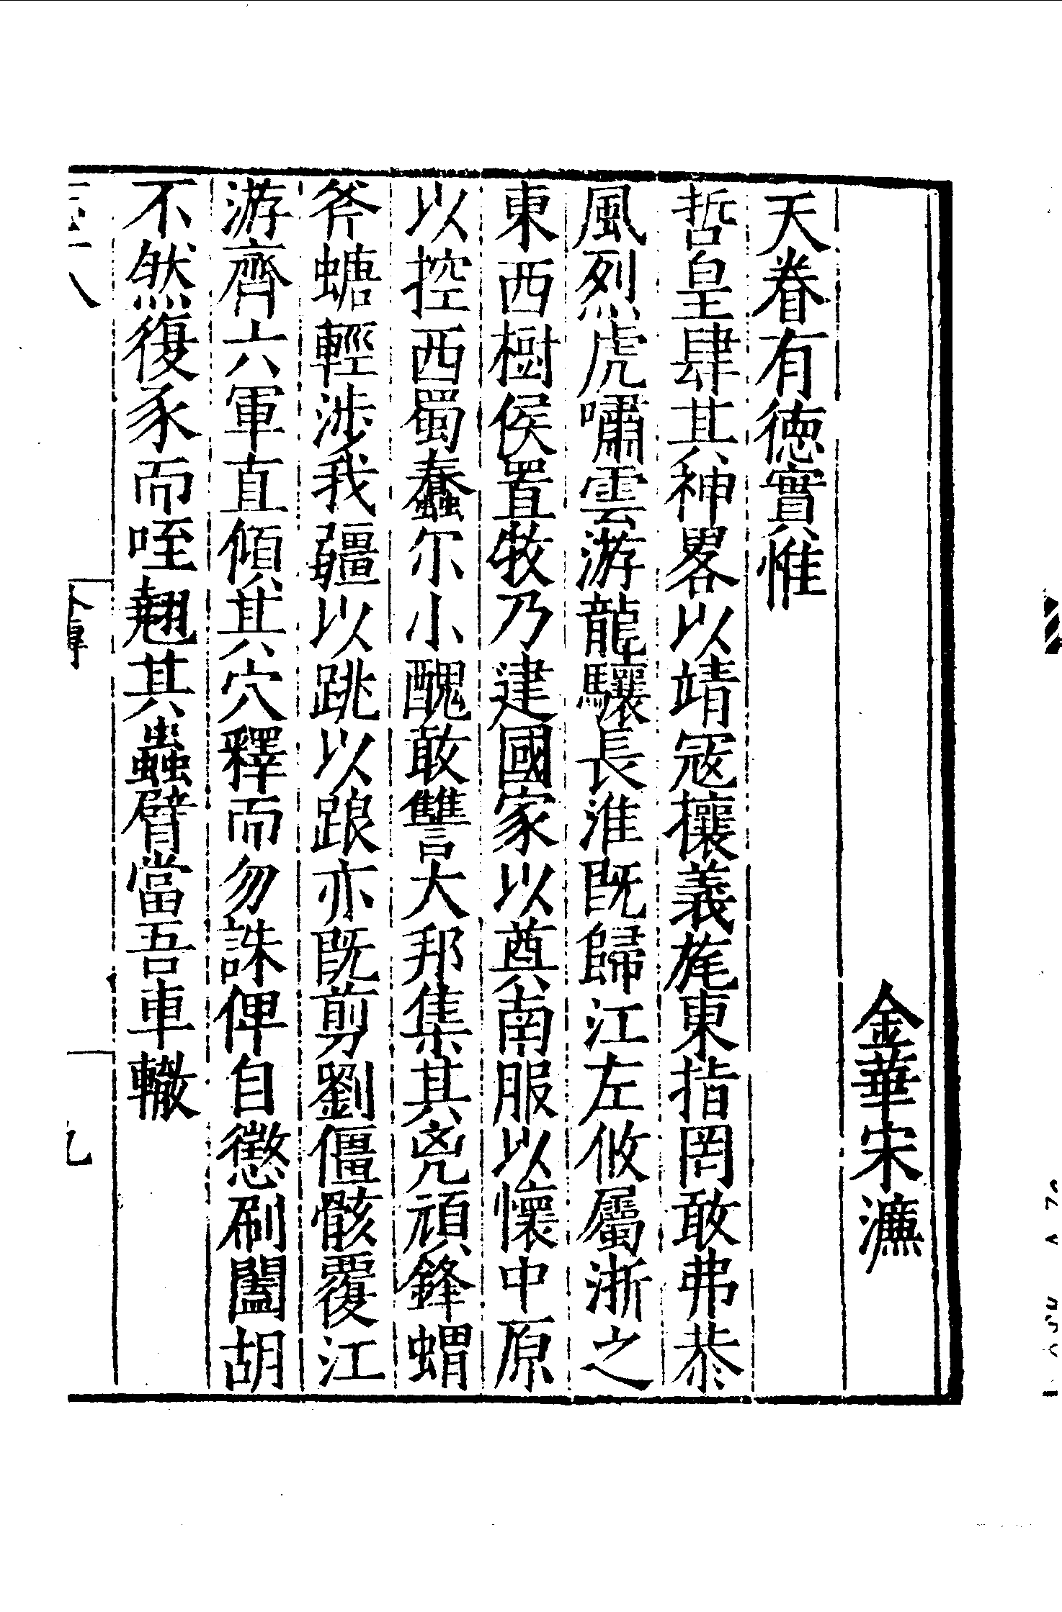 金華宋濂
天眷有德實惟
哲皇肆其神畧以靖宼攘義旄東指罔敢弗恭
風烈虎嘯雲游龍驤長淮既歸江左攸屬浙之
東西樹侯置牧乃建國家以奠南服以懷中原
以控西蜀蠢尔小醜敢讐大邦集其兇頑鋒蝟
斧螗輕涉我疆以跳以踉亦既剪劉僵骸覆江
游齊六軍直傾其穴釋而勿誅俾自懲刷闔胡
不然復豕而咥翹其蟲臂當吾車轍